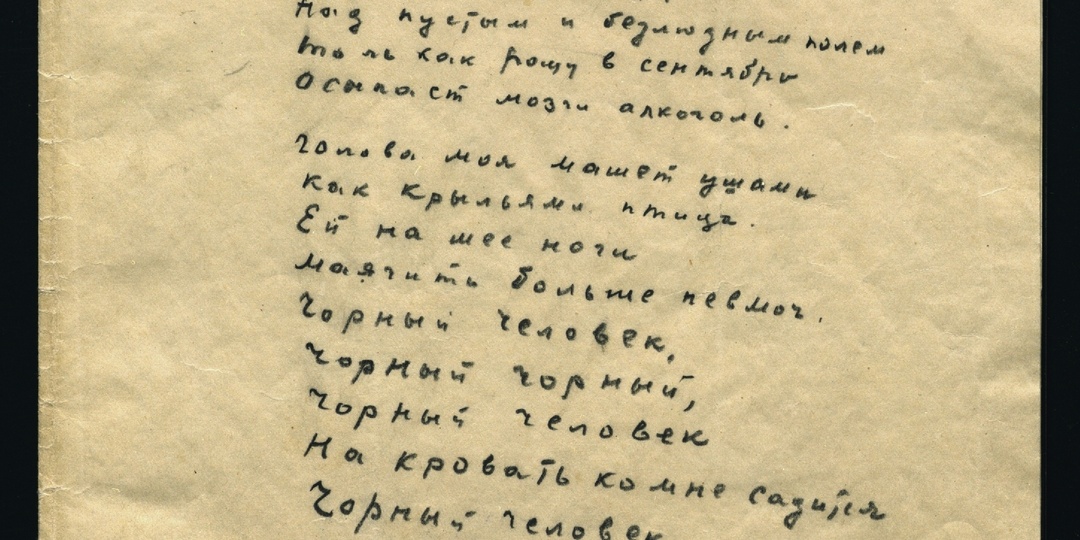 Над пустым и безлюдным полем
Толь как рощу в сентябрь
Осыпаст мозги алкоголь.
Голова моя машет ушами
как крыльями птица.
Ей на шее ноги
маячить больше невмоч.
Чорный человек,
чорный чорный,
чорный человек
На кровать ко мне садится
Чорный человек